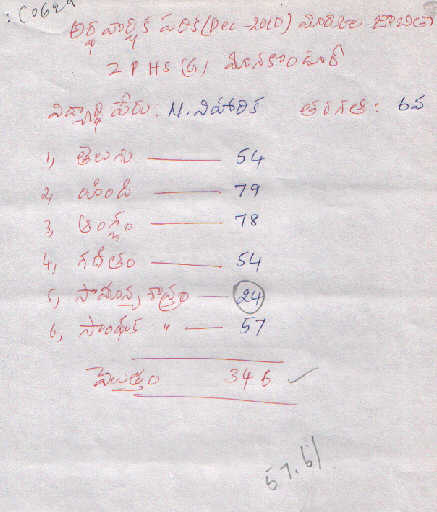 : C0629
అర్ధ వార్షిక పరీక్ష (Dec - 2010) మార్కుల జాబితా
Z P H S (G)
విద్యార్థి పేరు: M. నిహారిక తరగతి: 6వ
1, తెలుగు — 54
2, హింది — 79
3, ఆంగ్లం — 78
4, గణితం — 54
5, సామాన్య శాస్త్రం — 24
6, సాంఘిక " — 57
మొత్తం 346 ✓
57.6%